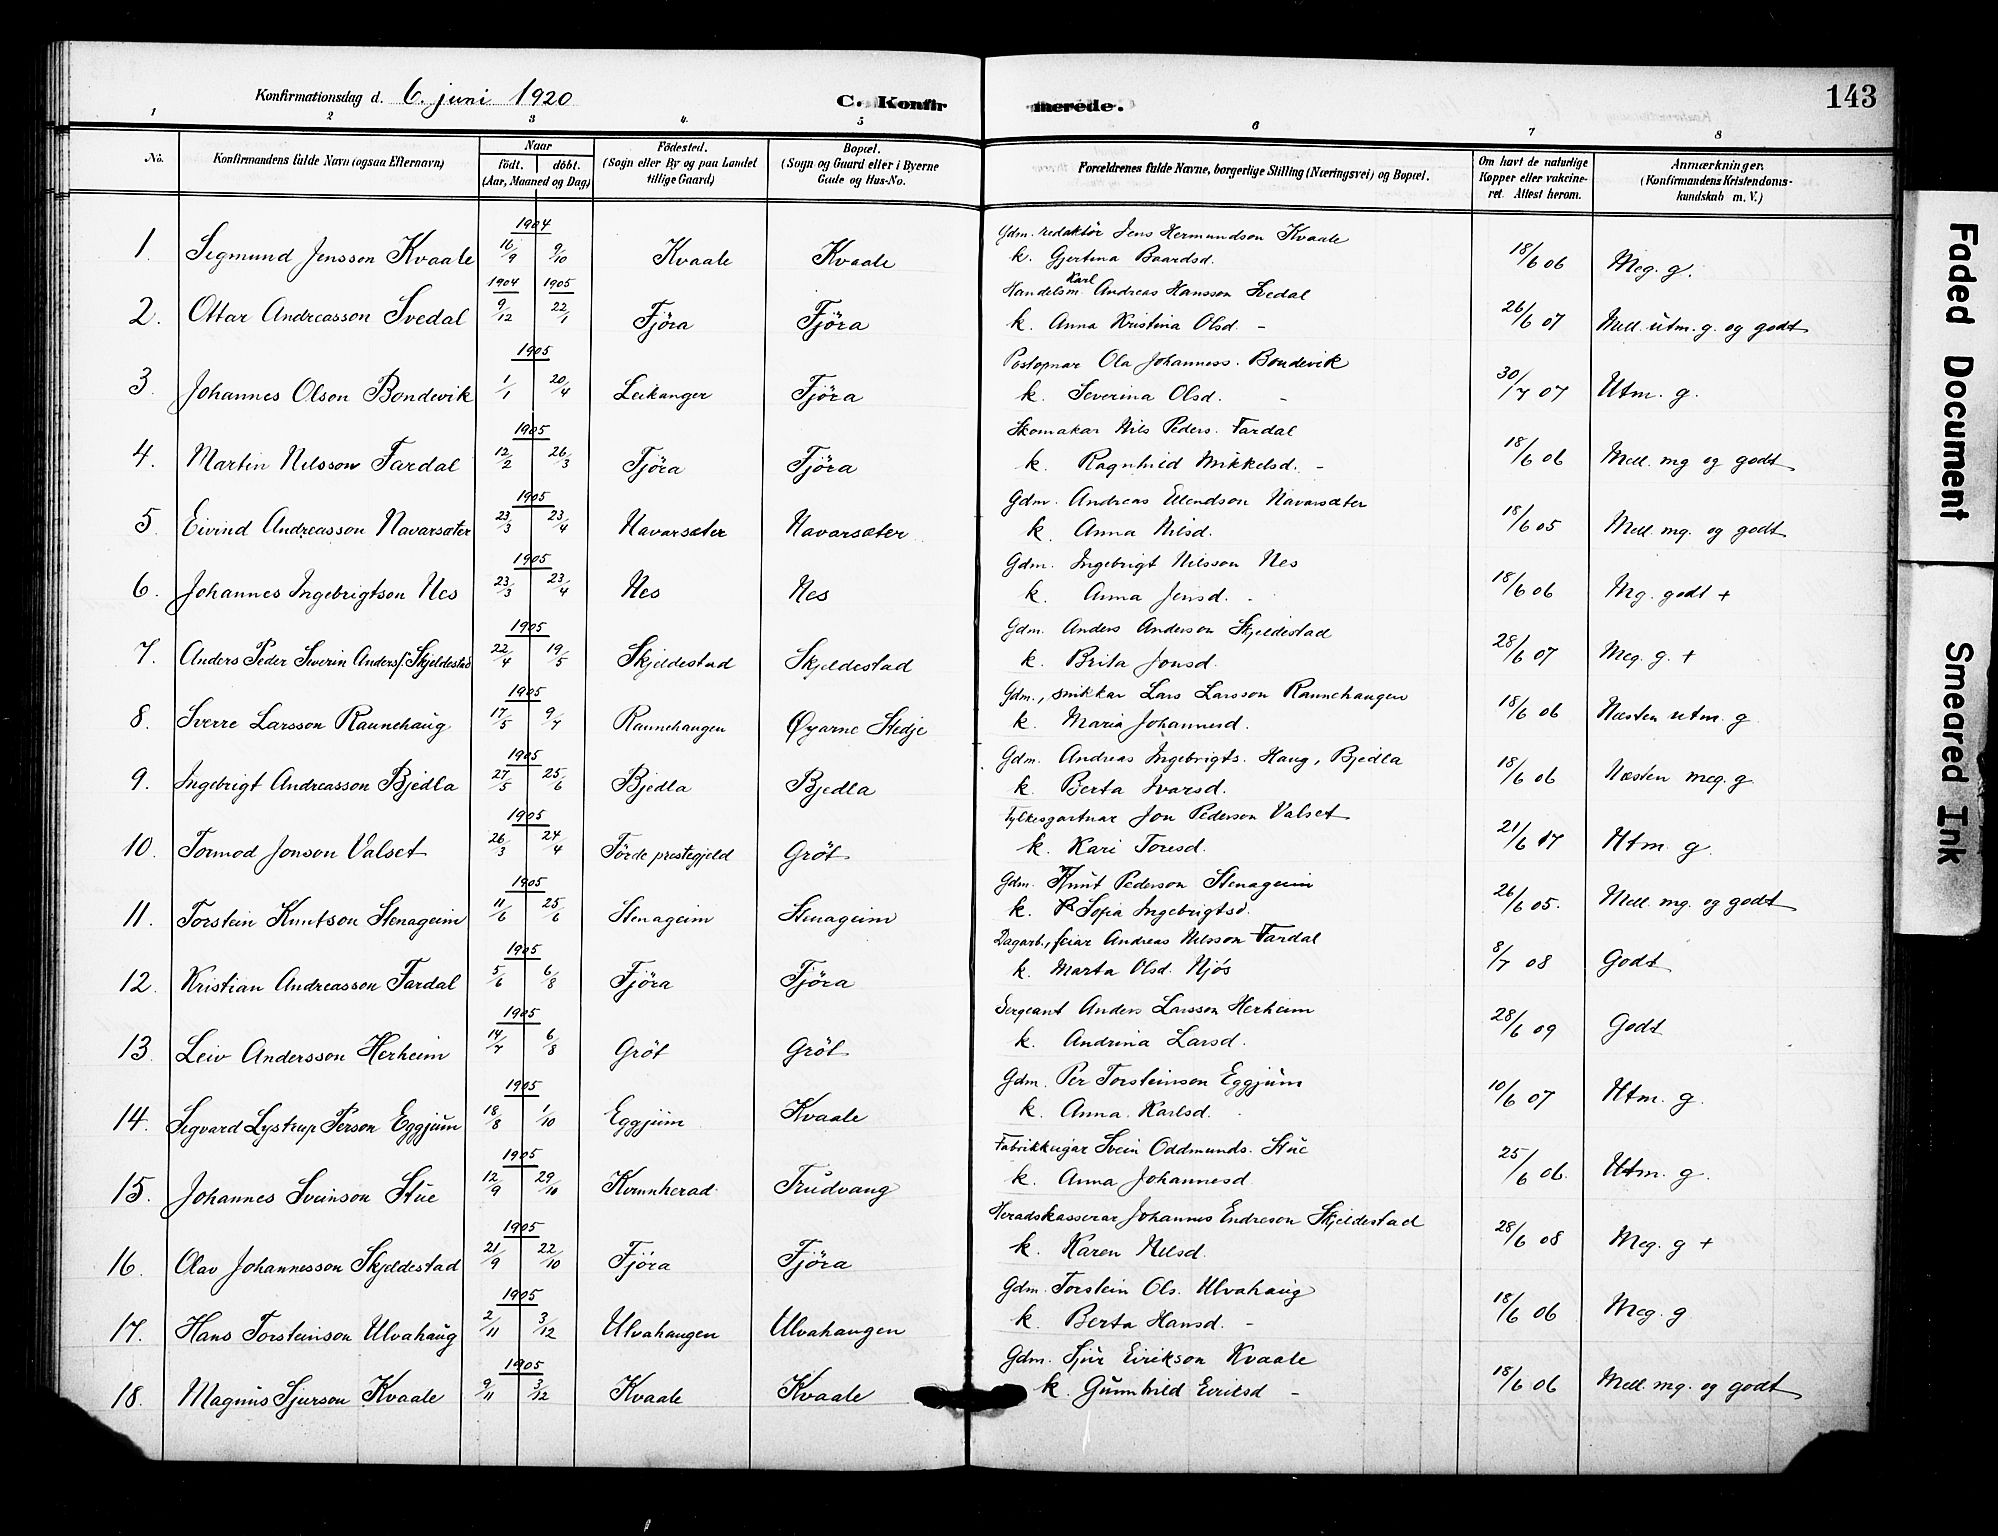 Konfirmationsdag d. 6. juni 1920 C. Konfirmerede. 143
1 2 3 4. 5 6 7 8
No. Konfirmandens fulde Navn (ogsaa Efternavn) Naar født. døbt. (Aar, Maaned og Dag) Fødested. (Sogn eller By og paa Landet tillige Gaard) Bopæl. (Sogn og Gaard eller i Byerne Gade og Hus-No. Forældrenes fulde Navne, borgerlige Stilling (Næringsvei) og Bopæl. Om havt de naturlige Kopper eller vakcineret. Attest herom. Anmærkninger. (Konfirmandens Kristendomskundskab m. V.)
1904 Gdm. redaktør Jens Hermundson Kvaale
1. Sigmund Jensson Kvaale 16/9 9/10 Kvaale Kvaale k. Gjertina Baardsd. 18/6 06 Meg. g.
1904 1905 Handelsm. Karl Andreas Hansson Svedal
2. Ottar Andreasson Svedal 9/12 22/1 Fjöra Fjöra k. Anna Kristina Olsd. - 26/6 07 Mell. utm. g. og godt
1905 Postopnar Ola Johanness. Bondevik
3. Johannes Olson Bondevik 1/1 20/4 Leikanger Fjöra k. Severina Olsd. - 30/7 07 Utm. g.
1905 Skomakar Nils Peders. Fardal
4. Martin Nilsson Fardal 12/2 26/3 Fjöra Fjöra k. Ragnhild Mikkelsd. - 18/6 06 Mell. mg og godt
1905 Gdm. Andreas Ellendson Navarsæter
5. Eivind Andreasson Navarsæter 23/3 23/4 Navarsæter Navarsæter k. Anna Nilsd. 18/6 05 Mell. mg. og godt
1905 Gdm. Ingebrigt Nilsson Nes
6. Johannes Ingebrigtson Nes 23/3 23/4 Nes Nes k. Anna Jensd. - 18/6 06 Mg. godt +
1905 Gdm. Anders Anderson Skjeldestad
7. Anders Peder Severin Anders. Skjeldestad 22/4 19/5 Skjeldestad Skjeldestad k. Brita Jonsd. 28/6 07 Meg. g. +
1905 Gdm., snikkar Lars Larsson Raunehaugen
8. Sverre Larsson Raunehaug 17/5 9/7 Raunehaugen Øyarne Stedje k. Maria Johannesd. 18/6 06 Næsten utm. g
1905 Gdm. Andreas Ingebrigts. Haug, Bjedla
9. Ingebrigt Andreasson Bjedla 27/5 25/6 Bjedla Bjedla k. Berta Ivarsd. 18/6 06 Næsten meg. g
1905 Fylkesgartnar Jon Pederson Valset
10. Tormod Jonson Valset 26/3 24/4 Förde prestegjeld Gröt k. Kari Toresd. 21/6 17 Utm. g.
1905 Gdm. Knut Pederson Stenageim
11. Torstein Knutson Stenageim 11/6 25/6 Stenageim Stenageim k. Sofia Ingebrigtsd. 26/6 05. Mell. mg. og godt
1905 Dagarb., feiar Andreas Nilsson Fardal
12. Kristian Andreasson Fardal 5/6 6/8 Fjöra Fjöra k. Marta Olsd. Njøs 8/7 08 Godt
1905 Sergeant Anders Larsson Herheim
13. Leiv Andersson Herheim 14/7 6/8 Gröt Gröt k. Andrina Larsd. 28/6 09 Godt
1905 Gdm. Per Torsteinson Eggjum
14. Sigvard Lystrup Person Eggjum 18/8 1/10 Eggjum Kvaale k. Anna Karlsd. 10/6 07 Utm. g.
1905 Fabrikkeigar Svein Oddmunds. Stue
15. Johannes Sveinson Stue 12/9 29/10 Kvinnherad Trudvang k. Anna Johannesd 25/6 06. Utm. g.
1905 Heradskasserar Johannes Endreson Skjeldestad
16. Olav Johannesson Skjeldestad 21/9 22/10 Fjöra Fjöra k. Karen Nilsd. 28/6 08 Meg. g +
1905 Gdm. Torstein Ols. Ulvahaug
17. Hans Torsteinson Ulvahaug 2/11 3/12 Ulvahaugen Ulvahaugen k. Berta Hansd. - 18/6 06 Meg. g
1905 Gdm. Sjur Eirikson Kvaale
18. Magnus Sjurson Kvaale 9/11 3/12 Kvaale Kvaale k. Gunnhild Eiriksd - 18/6 06 Mell. mg. og godt
Faded Document
Smeared Ink